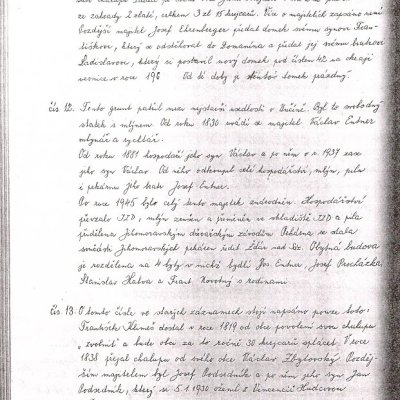 ze zahrady 2 zlaté, celkem 3 zl 15 krejcarů. Více o majetkách zapsáno není
Pozdější majitel Josef Ehrenberger předal domek svému synovi Fran-
tiškovi, který se odstěhoval do Domanína a předal jej svému bratrovi
Ladislavovi, který si postavil nový domek pod číslem 42 na okraji
vesnice v roce 196 Od té doby je tento domek prázdný.
čís. 12. Tento grunt patřil mezi největší usedlosti v Bučině. Byl to svobodný
statek s mlýnem. Od roku 1830 uvádí se majitel Václav Entner
mlynář a rychtář.
Od roku 1881 hospodaří jeho syn Václav a po něm v r. 1937 zase
jeho syn Václav. Od něho odkoupil celé hospodářství, mlýn, pilu
i pekárnu jeho bratr Josef Entner.
Po roce 1945 byl celý tento majetek znárodněn. Hospodářství
převzalo JZD, mlýn zrušen a přeměněn ve skladiště JZD a pila
přidělena Jihomoravským dřevařským závodům. Pekárna se stala
součástí Jihomoravských pekáren. Obytná budova
je rozdělena na 4 byty v nichž bydlí Jos. Entner, Josef Procházka,
Stanislav Halva a Frant. Novotný s rodinami.
čís. 13. O tomto čísle ve starých záznamech stojí napsáno pouze toto:
František Klimeš dostal v roce 1819 od obce povolení svou chalupu
„zvelniti" a bude obci za to ročně 30 krejcarů splácet. V roce
1838 přejal chalupu od svého otce Václav Zbytovský. Pozděj-
ším majitelem byl Josef Podsedník a po něm jeho syn Jan
Podsedník, který se 5.1.1930 oženil s Vincencií Hudcovou